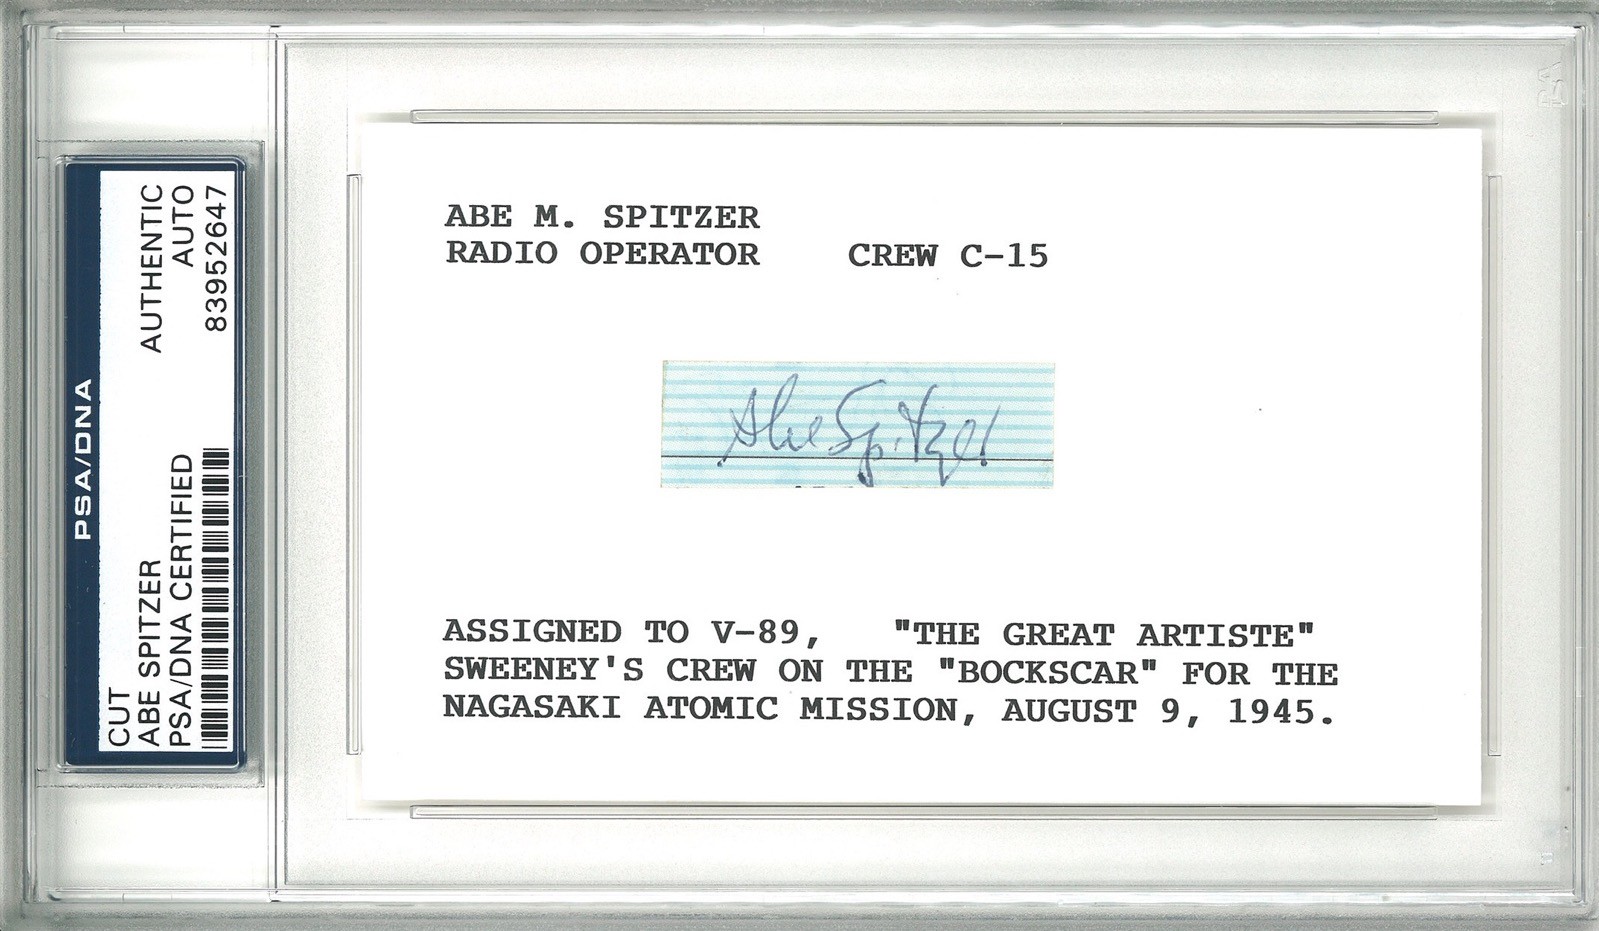 PSA/DNA
CUT
ABE SPITZER
PSA/DNA CERTIFIED
AUTHENTIC
AUTO
83952647
ABE M. SPITZER
RADIO OPERATOR CREW C-15
Abe Spitzer
ASSIGNED TO V-89, "THE GREAT ARTISTE"
SWEENEY'S CREW ON THE "BOCKSCAR" FOR THE
NAGASAKI ATOMIC MISSION, AUGUST 9, 1945.